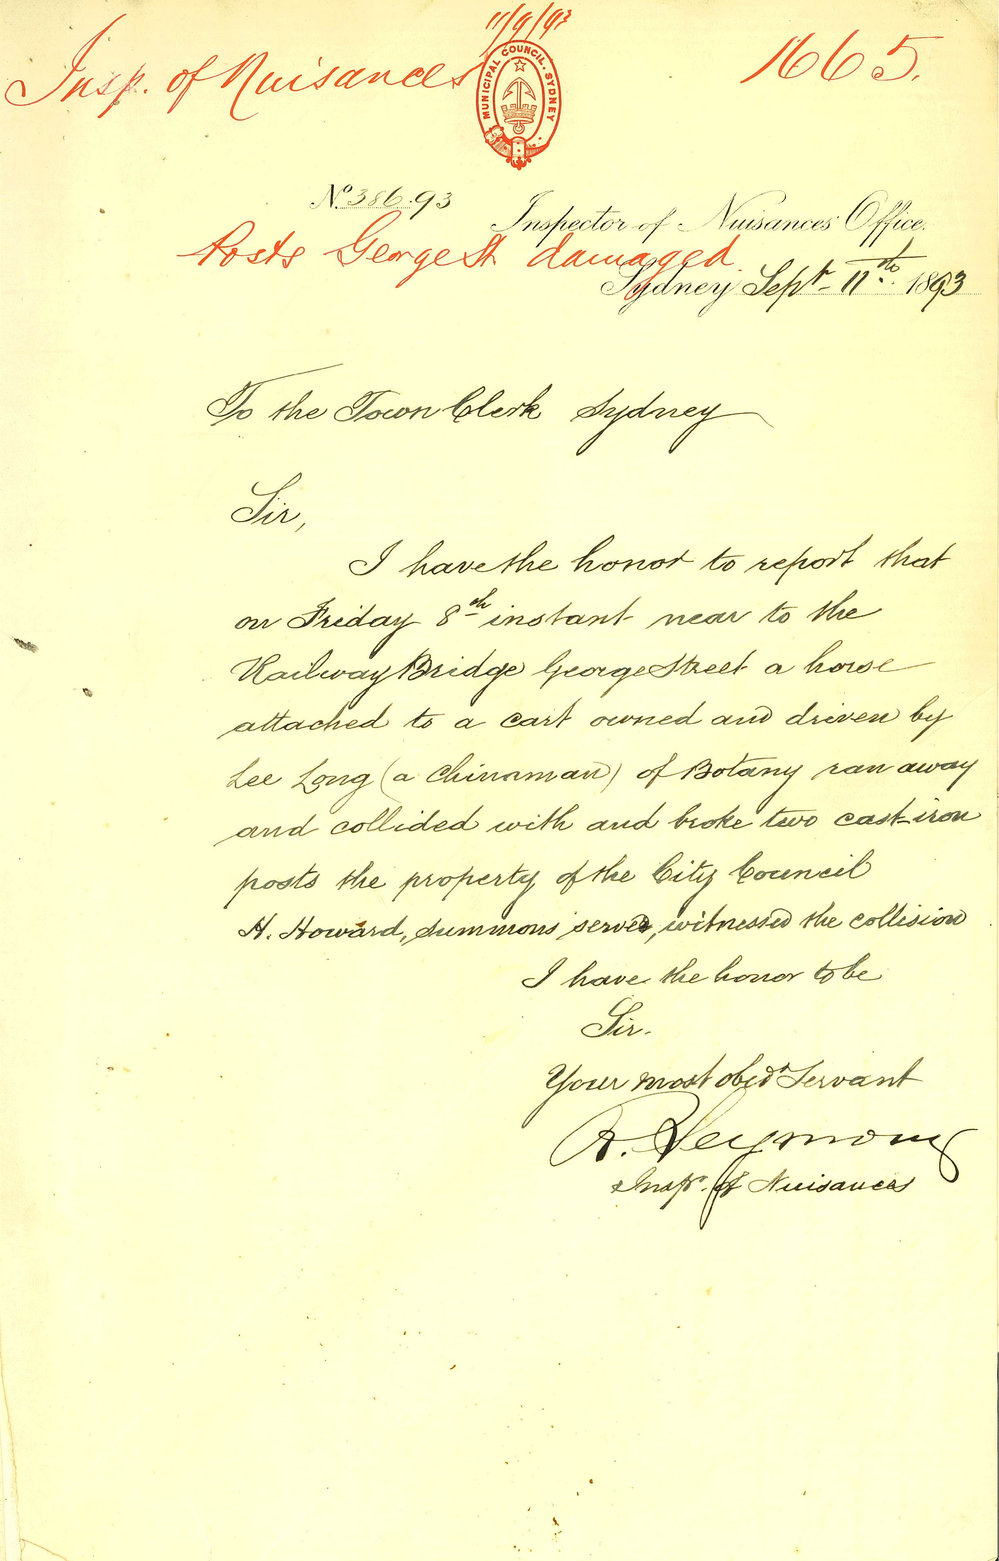 11/9/93
Insp. of Nuisances
MUNICIPAL COUNCIL. SYDNEY
1665.
No. 386.93
Inspector of Nuisances' Office.
Posts George St damaged.
Sydney Sept. 11th. 1893
To the Town Clerk Sydney
Sir,
I have the honor to report that
on Friday 8th instant near to the
Railway Bridge George Street a horse
attached to a cart owned and driven by
Lee Long (a Chinaman) of Botany ran away
and collided with and broke two cast-iron
posts the property of the City Council
H. Howard, summons server, witnessed the collision
I have the honor to be
Sir.
Your most obedt Servant
R. Seymour
Inspr. of Nuisances